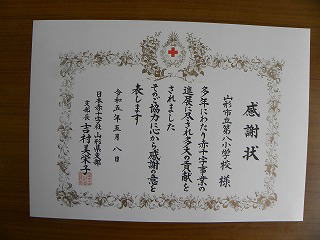 感謝状
山形市立第八小学校 様
多年にわたり赤十字事業の
進展に尽され多大の貢献を
されました
そのご協力に心から感謝の意を
表します
令和五年五月八日
日本赤十字社 山形県支部
支部長 吉村美栄子